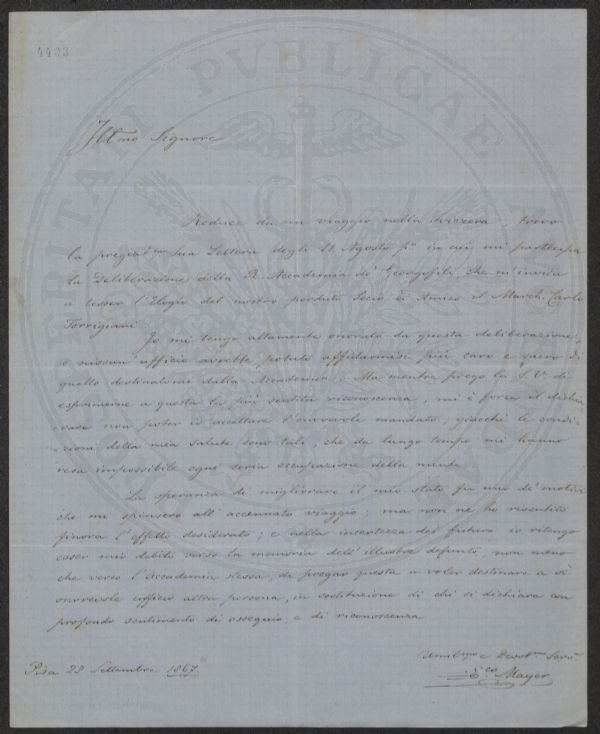 4493
Ill.mo Signore
Reduce da un viaggio nella Svizzera, trovo
la pregiat.ma Sua Lettera degli 11 Agosto p.o in cui mi partecipa
la Deliberazione della R. Accademia de' Georgofili, che m'invita
a tesser l'Elogio del nostro perduto Socio ed Amico il March. Carlo
Torrigiani.
Io mi tengo altamente onorato da questa deliberazione,
e nissun ufficio avrebbe potuto affidarmisi più caro e sacro di
quello destinatomi dalla Accademia. Ma mentre prego la S.V. di
esprimerne a questa la più sentita riconoscenza, mi è forza il dichia-
rare non poter io accettare l'onorevole mandato, giacchè le condi-
zioni della mia salute sono tali, che da lungo tempo mi hanno
resa impossibile ogni seria occupazione della mente.
La speranza di migliorare il mio stato fu uno de' motivi
che mi spinsero all'accennato viaggio; ma non ne ho risentito
finora l'effetto desiderato; e nella incertezza del futuro io ritengo
esser mio debito verso la memoria dell'illustre defunto, non meno
che verso l'Accademia stessa, di pregar questa a voler destinare a sì
onorevole ufficio altra persona, in sostituzione di chi si dichiara con
profondo sentimento di ossequio, e di riconoscenza
Umil.mo e Devot.mo Serv.e
E.co Mayer
Pisa 28 Settembre 1867.